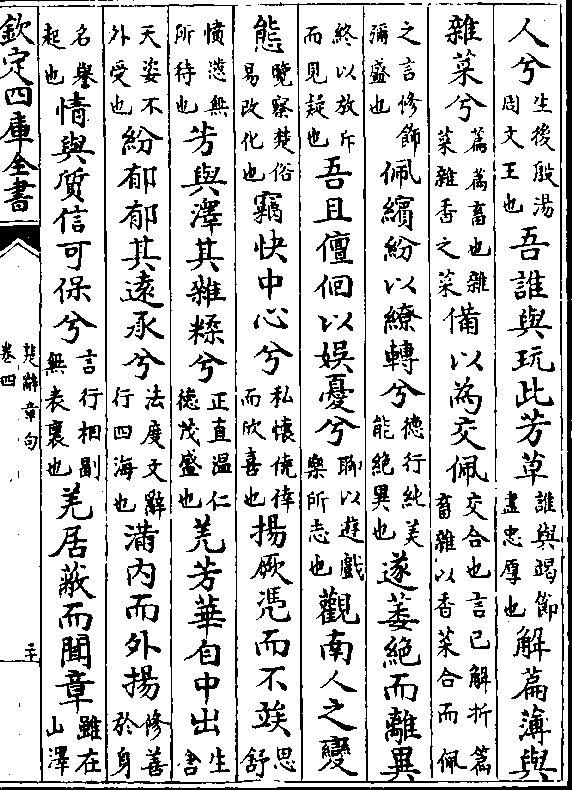 人兮生後殷湯周文王也吾誰與玩此芳草誰與竭節盡忠厚也解萹薄與
雜菜兮萹萹畜也雜菜雜香之菜備以為交佩交合也言已解折萹畜雜以香菜合而佩
之言修飾彌盛也佩繽紛以繚轉兮德行純美能絶異也遂萎絶而離異
終以放斥而見疑也吾且儃佪以娱憂兮聊以遊戲樂所志也觀南人之變
態覽察楚俗易改化也竊快中心兮私懷僥倖而欣喜也揚厥凴而不竢思舒
憤懣無所待也芳與澤其雜糅兮正直温仁德茂盛也羌芳華自中出生含
天姿不外受也紛郁郁其遠承兮法度文辭行四海也滿内而外揚修善於身
名舉起也情與質信可保兮言行相副無表裏也羌居蔽而聞章雖在山澤
欽定四庫全書
楚辭章句
卷四